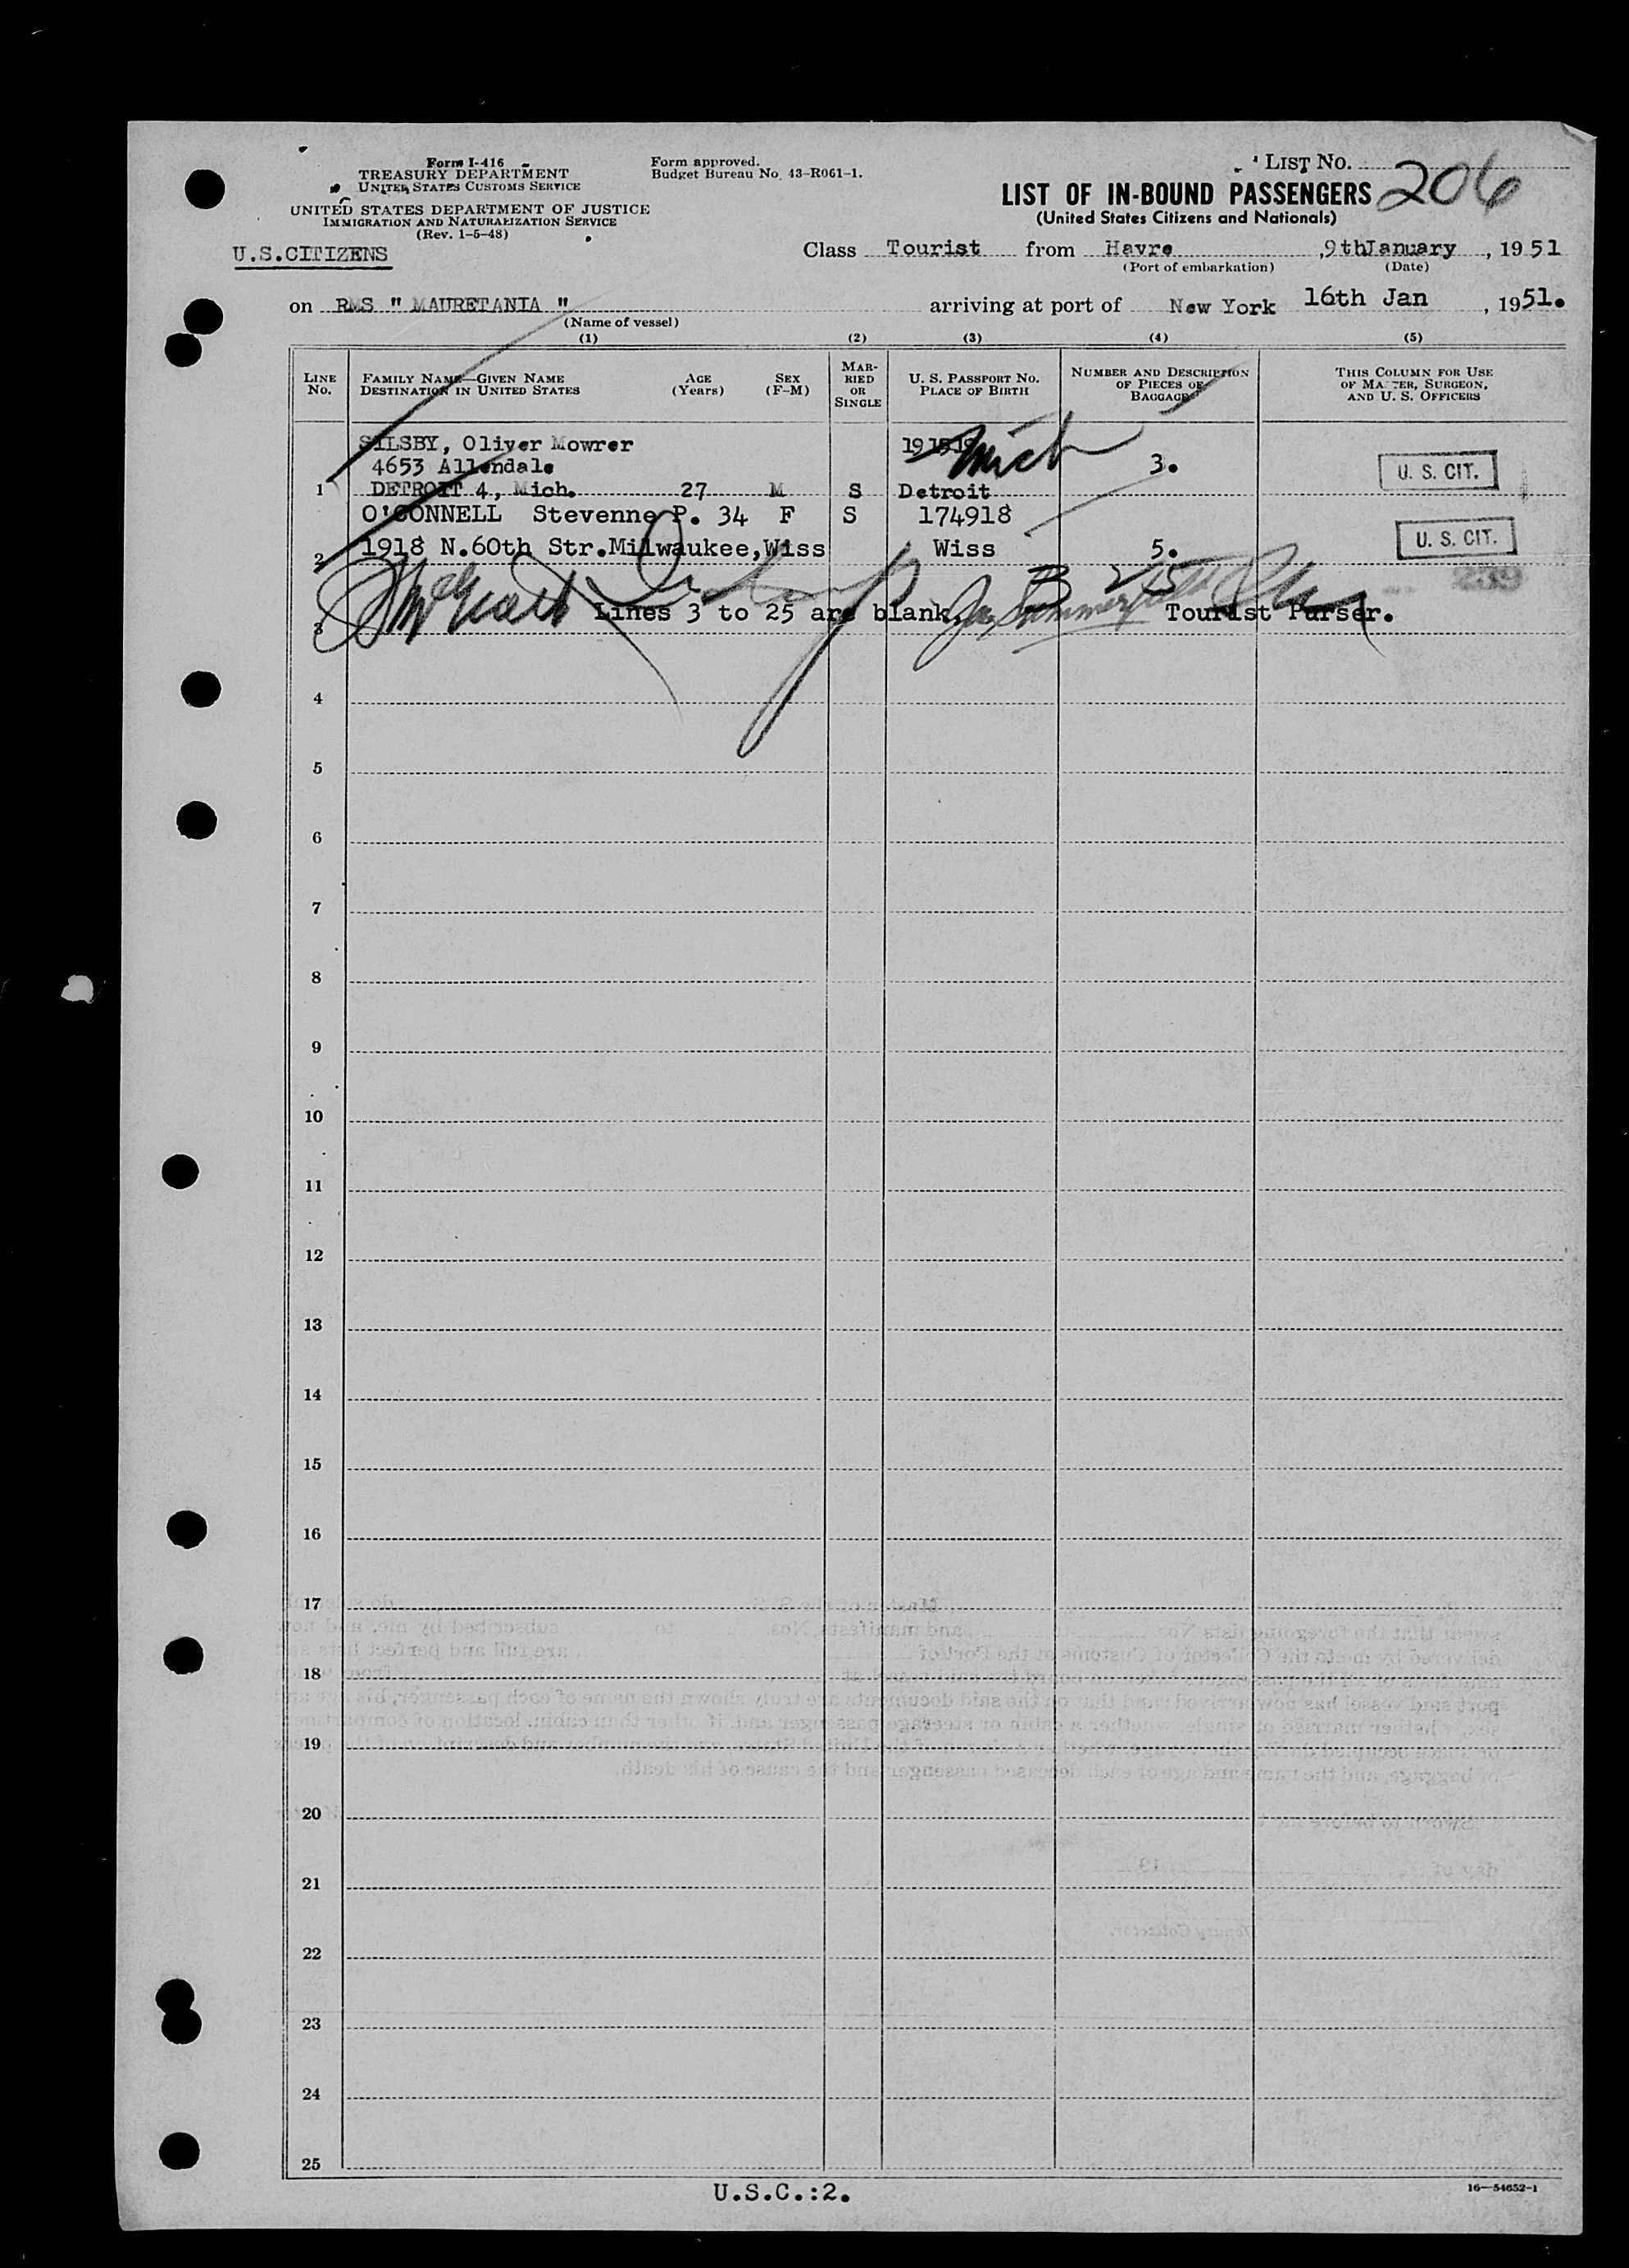 Form I-416
TREASURY DEPARTMENT
UNITED STATES CUSTOMS SERVICE
UNITED STATES DEPARTMENT OF JUSTICE
IMMIGRATION AND NATURALIZATION SERVICE
(Rev. 1-5-48)
U.S.CITIZENS
Form approved.
Budget Bureau No. 43-R061-1.
LIST NO. 206
LIST OF IN-BOUND PASSENGERS
(United States Citizens and Nationals)
Class Tourist from Havre ,9thJanuary , 1951
(Port of embarkation) (Date)
on RMS " MAURETANIA " arriving at port of New York 16th Jan , 1951.
(Name of vessel)
(1) (2) (3) (4) (5)
LINE NO.
FAMILY NAME—GIVEN NAME
DESTINATION IN UNITED STATES
AGE (Years)
SEX (F-M)
MARRIED OR SINGLE
U. S. PASSPORT NO.
PLACE OF BIRTH
NUMBER AND DESCRIPTION OF PIECES OF BAGGAGE
THIS COLUMN FOR USE OF MASTER, SURGEON, AND U. S. OFFICERS
SILSBY, Oliver Mowrer
4653 Allendale Mich 3. U. S. CIT.
1 DETROIT 4, Mich. 27 M S Detroit
O'CONNELL Stevenne P. 34 F S 174918
2 1918 N.60th Str.Milwaukee,Wiss Wiss 5. U. S. CIT.
239
3 Lines 3 to 25 are blank. Tourist Purser.
4
5
6
7
8
9
10
11
12
13
14
15
16
17
18
19
20
21
22
23
24
25
U.S.C.:2.
16—54652-1